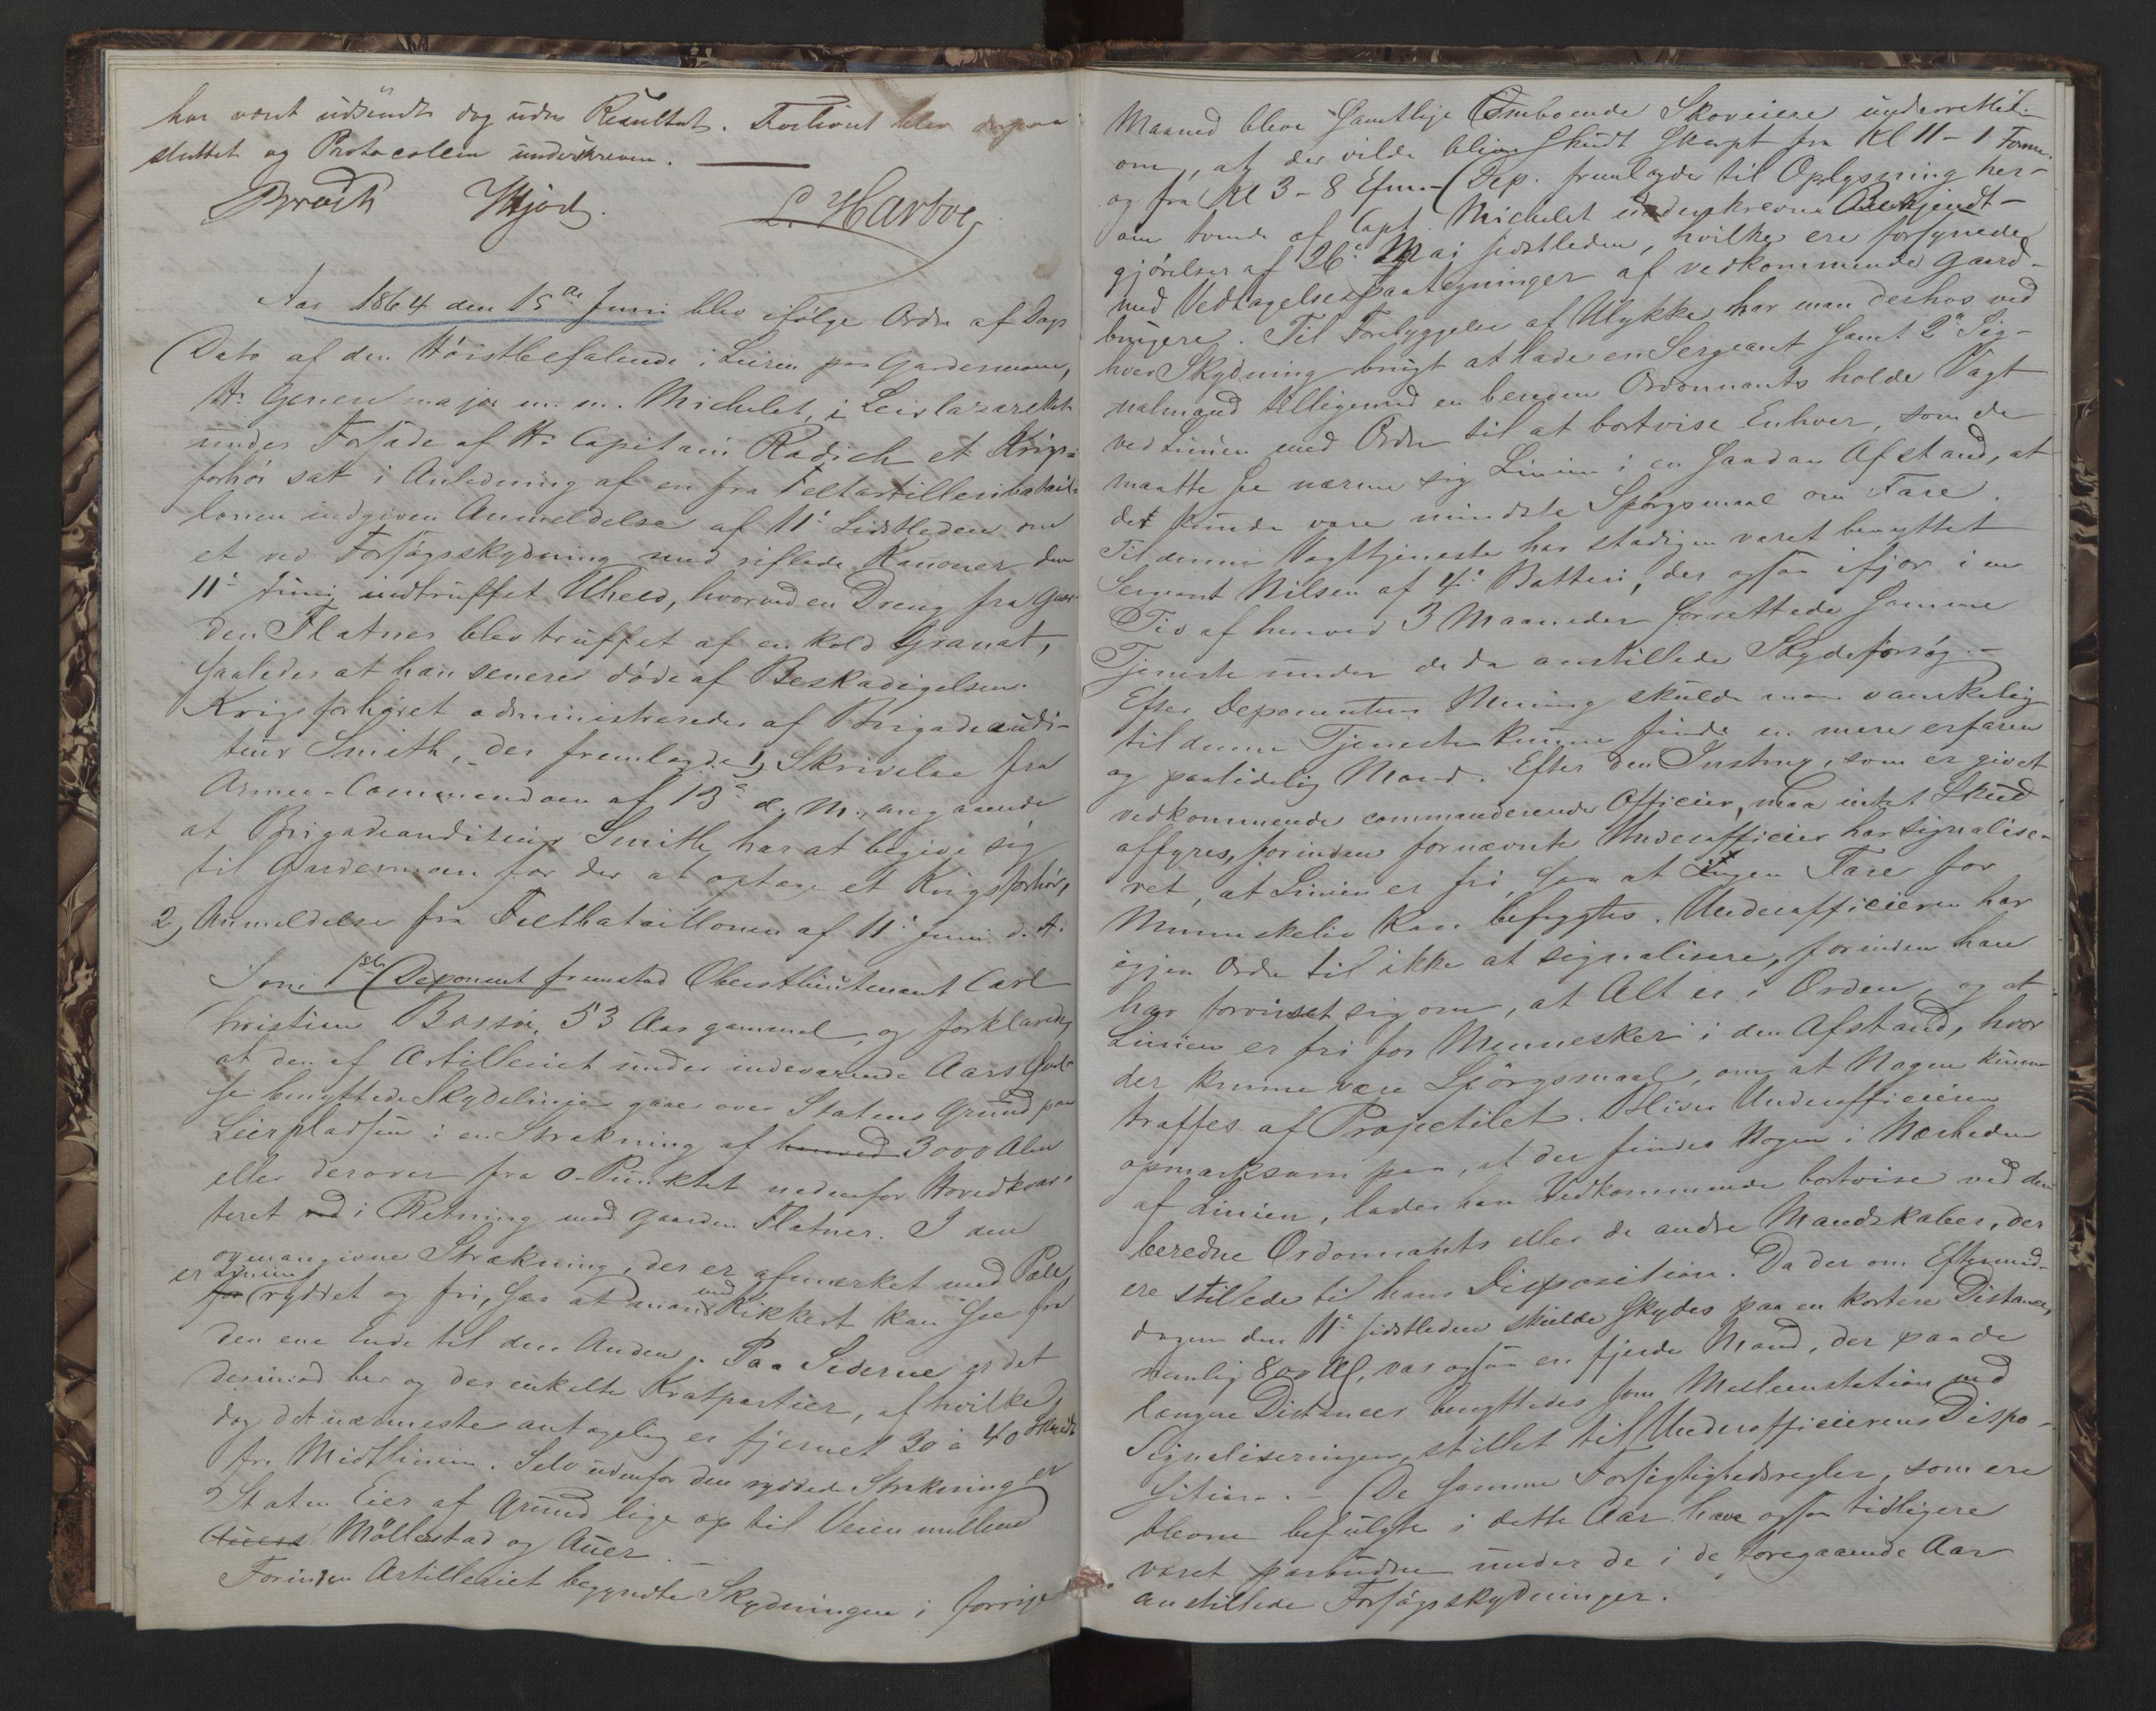 har været udsendt dog uden Resultat. Forhøret blev derpaa
sluttet og Protocollen underskreven. —
Broch Hjort. L. Harboe
Aar 1864 den 15de Juni blev ifølge Ordre af Dags
Dato af den Høistbefalende i Leiren paa Gardermoen,
Hr Generalmajor m. m. Michelet, i Leirlazarethet
under Forsæde af Hr Capitain Radich et Krigs-
forhør sat i Anledning af en fra Feltartilleribatail-
lonen indgiven Anmeldelse af 11' sidstleden om
et ved Forsøgsskydning med riflede Kanoner den
11' Juni indtruffet Uheld, hvorved en Dreng fra Gaar-
den Flatner blev truffet af en kold Granat,
saaledes at han senere døde af Beskadigelsen.
Krigsforhøret administreredes af Brigadeaudi-
teur Smith, der fremlagde 1, Skrivelse fra
Armee-Commandoen af 13' d. M., angaaende
at Brigadeauditeur Smith har at begive sig
til Gardermoen for der at optage et Krigsforhør,
2, Anmeldelse fra Feltbataillonen af 11' Juni d. A.
Som 1ste Deponent fremstod Oberstlieutenant Carl
Christian 53 Aar gammel, og forklarede,
at den af Artilleriet under indeværende Aars
benyttede Skydelinje gaaer over Statens Grund paa
Leirpladsen i en Strækning af henved 3000 Alen
eller derover fra 0-Punktet nedenfor Hovedkvar-
teret ved i Retning mod Gaarden Flatner. I den
ovenangivne Strækning, der er afmærket med Pæle,
er Linien
for ryddet og fri, saa at man med Kikkert kan see fra
den ene Ende til den Anden. Paa Siderne er det
derimod her og der enkelte Kratpartier, af hvilke
dog det nærmeste antagelig er fjernet 30 à 40 Skridt
fra Midtlinien. Selv udenfor den ryddede Strækning er
Staten Eier af Grund lige op til Veien mellem
Auers Möllerstad og Auer. —
Forinden Artilleriet begyndte Skydningen i forrige
Maaned bleve samtlige Omboende Skoveiere underrettet
om, at der vilde blive skudt skarpt fra Kl 11 - 1 Form.
og fra Kl 3 - 8 Efm. - Dep. fremlagde til Oplysning her-
om tvende af Capt. Michelet underskrevne Bekjendt-
gjørelser af 26' Mai sidstleden, hvilke ere forsynede
med Vedtagelsespaategninger af vedkommende Gaard-
brugere. Til Forebyggelse af Ulykke har man derhos ved
hver Skydning brugt at lade en Sergeant samt 2 Sig-
nalmænd tilligemed en bereden Ordonnants holde Vagt
ved Linien med Ordre til at bortvise Enhver, som de
maatte see nærme sig Linien i en saadan Afstand, at
det kunde være mindste Spörgsmaal om Fare.
Til denne Vagttjeneste har stadigen været benyttet
Sergeant Nilsen af 4' Batteri, der ogsaa ifjor i en
Tid af henved 3 Maaneder forrettede samme
Tjeneste under de da anstillede Skydeforsøg. —
Efter Deponentens Mening skulde man vanskelig
til denne Tjeneste kunne finde en mere erfaren
og paalidelig Mand. Efter den Instrux, som er givet
vedkommende commanderende Officier, maa intet Skud
affyres, forinden fornævnte Underofficier har signalise-
ret, at Linien er fri, saa at ingen Fare for
Menneskeliv kan befrygtes. Underofficieren har
igjen Ordre til ikke at signalisere, forinden han
har forvisset sig om, at Alt er i Orden, og at
Linien er fri for Mennesker i den Afstand, hvor
der kunne være Spörgsmaal, om at Nogen kunne
træffes af Projectilet. Bliver Underofficieren
opmærksom paa, at der findes Nogen i Nærheden
af Linien, lader han Vedkommende bortvise ved den
beredne Ordonnants eller de andre Mandskaber, der
ere stillede til hans Disposition. Da der om Eftermid-
dagen den 11' sidstleden skulde skydes paa en kortere Distance,
nemlig 800 Al, var ogsaa en fjerde Mand, der paa de
længere Distancer benyttedes som Mellemstation ved
Signaliseringen, stillet til Underofficierens Dispo-
sition. — De samme Forsigtighedsregler, som ere
blevne befulgte i dette Aar have ogsaa tidligere
været paabudne under de i de foregaaende Aar
anstillede Forsøgsskydninger.